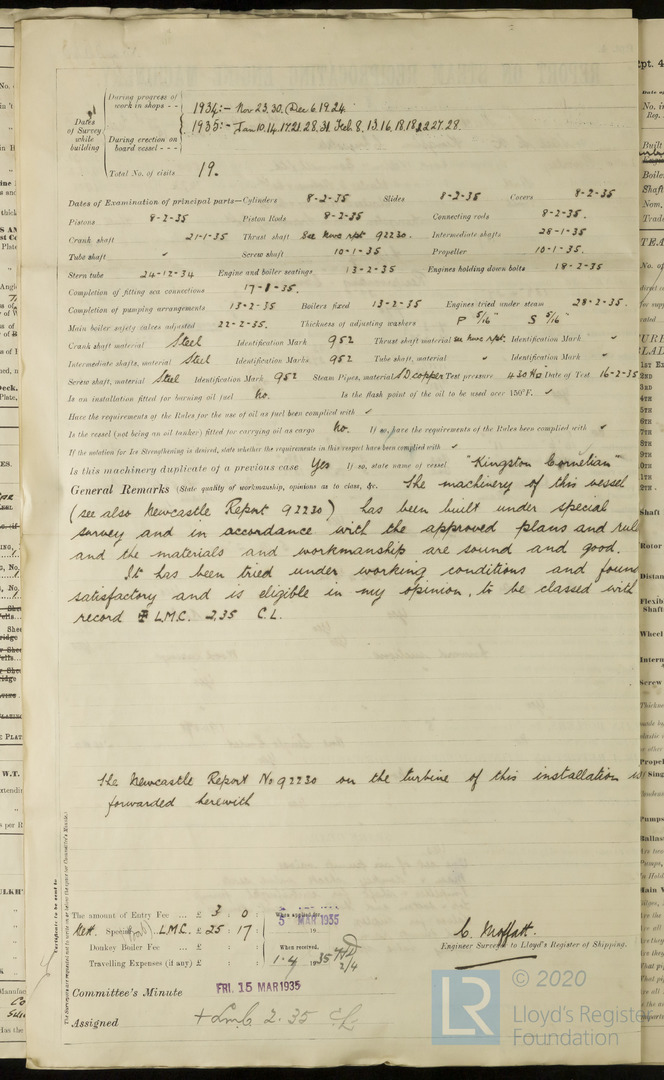 Dates of Survey while building
During progress of work in shops - - 1934:- Nov 23.30. Dec 6.19.24.
During erection on board vessel - - - 1935:- Jan 10.14.17.21.28.31. Feb. 8. 13.16.18.
Total No. of visits 19.
Dates of Examination of principal parts—Cylinders 8-2-35 Slides 8-2-35 Covers 8-2-35
Pistons 8-2-35 Piston Rods 8-2-35 Connecting rods 8-2-35.
Crank shaft 21-1-35 Thrust shaft See Nwc rpt 92230. Intermediate shafts 28-1-35
Tube shaft ✓ Screw shaft 10-1-35 Propeller 10-1-35.
Stern tube 24-12-34 Engine and boiler seatings 13-2-35 Engines holding down bolts 18-2-35
Completion of fitting sea connections 17-1-35.
Completion of pumping arrangements 13-2-35 Boilers fixed 13-2-35 Engines tried under steam 28-2-35.
Main boiler safety valves adjusted 22-2-35. Thickness of adjusting washers P 5/16" S 5/16"
Crank shaft material Steel Identification Mark 952 Thrust shaft material see Nwc rpt. Identification Mark ✓
Intermediate shafts, material Steel Identification Marks 952 Tube shaft, material ✓ Identification Mark ✓
Screw shaft, material Steel Identification Mark 952 Steam Pipes, material S D copper Test pressure 430 Date of Test 16-2-35
Is an installation fitted for burning oil fuel No. Is the flash point of the oil to be used over 150°F. ✓
Have the requirements of the Rules for the use of oil as fuel been complied with ✓
Is the vessel (not being an oil tanker) fitted for carrying oil as cargo No. If so, have the requirements of the Rules been complied with ✓
If the notation for Ice Strengthening is desired, state whether the requirements in this respect have been complied with ✓
Is this machinery duplicate of a previous case Yes If so, state name of vessel "Kingston Cornelian"
General Remarks (State quality of workmanship, opinions as to class, &c. The machinery of this vessel
(see also Newcastle Report 92230) has been built under special
survey and in accordance with the approved plans and rul
and the materials and workmanship are sound and good.
It has been tried under working conditions and foun
satisfactory and is eligible in my opinion, to be classed with
record ✠ L.M.C. 2,35 C.L.
The Newcastle Report No 92230 on the turbine of this installation is
forwarded herewith
The amount of Entry Fee ... £ 3 : 0 :
Special L.M.C. £ 25 : 17 :
Donkey Boiler Fee ... £
Travelling Expenses (if any) £
When applied for,
5 MAR 1935
When received,
1.4 1935
2/4
C. Moffatt.
Engineer Surveyor to Lloyd's Register of Shipping.
Committee's Minute FRI. 15 MAR 1935
Assigned + L.M.C. 2.35 C.L.
© 2020
LR
Lloyd's Register
Foundation